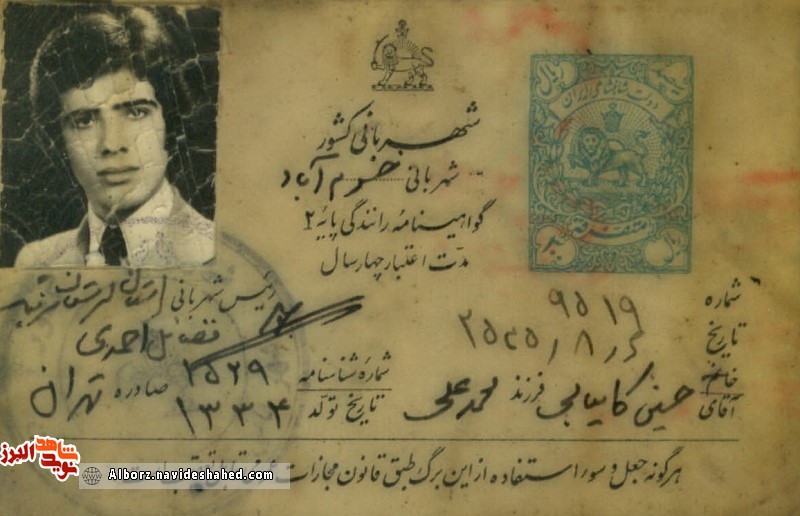 شهربانی کشور
شهربانی خرم آباد
گواهینامه رانندگی پایه ۲
مدت اعتبار چهار سال
ریال
دولت شاهنشاهی ایران
ریال
شماره ۹۵۱۹
تاریخ ۲۵۳۵/۸/
خانم
آقای حسین کامیابی فرزند محمد علی
شماره شناسنامه ۲۵۲۹ صادره تهران
تاریخ تولد ۱۳۳۴
رئیس شهربانی استان لرستان
احمدی
هرگونه جعل و سوء استفاده از این برگ طبق قانون مجازات
شاهد
نوید
البرز
Alborz.navideshahed.com